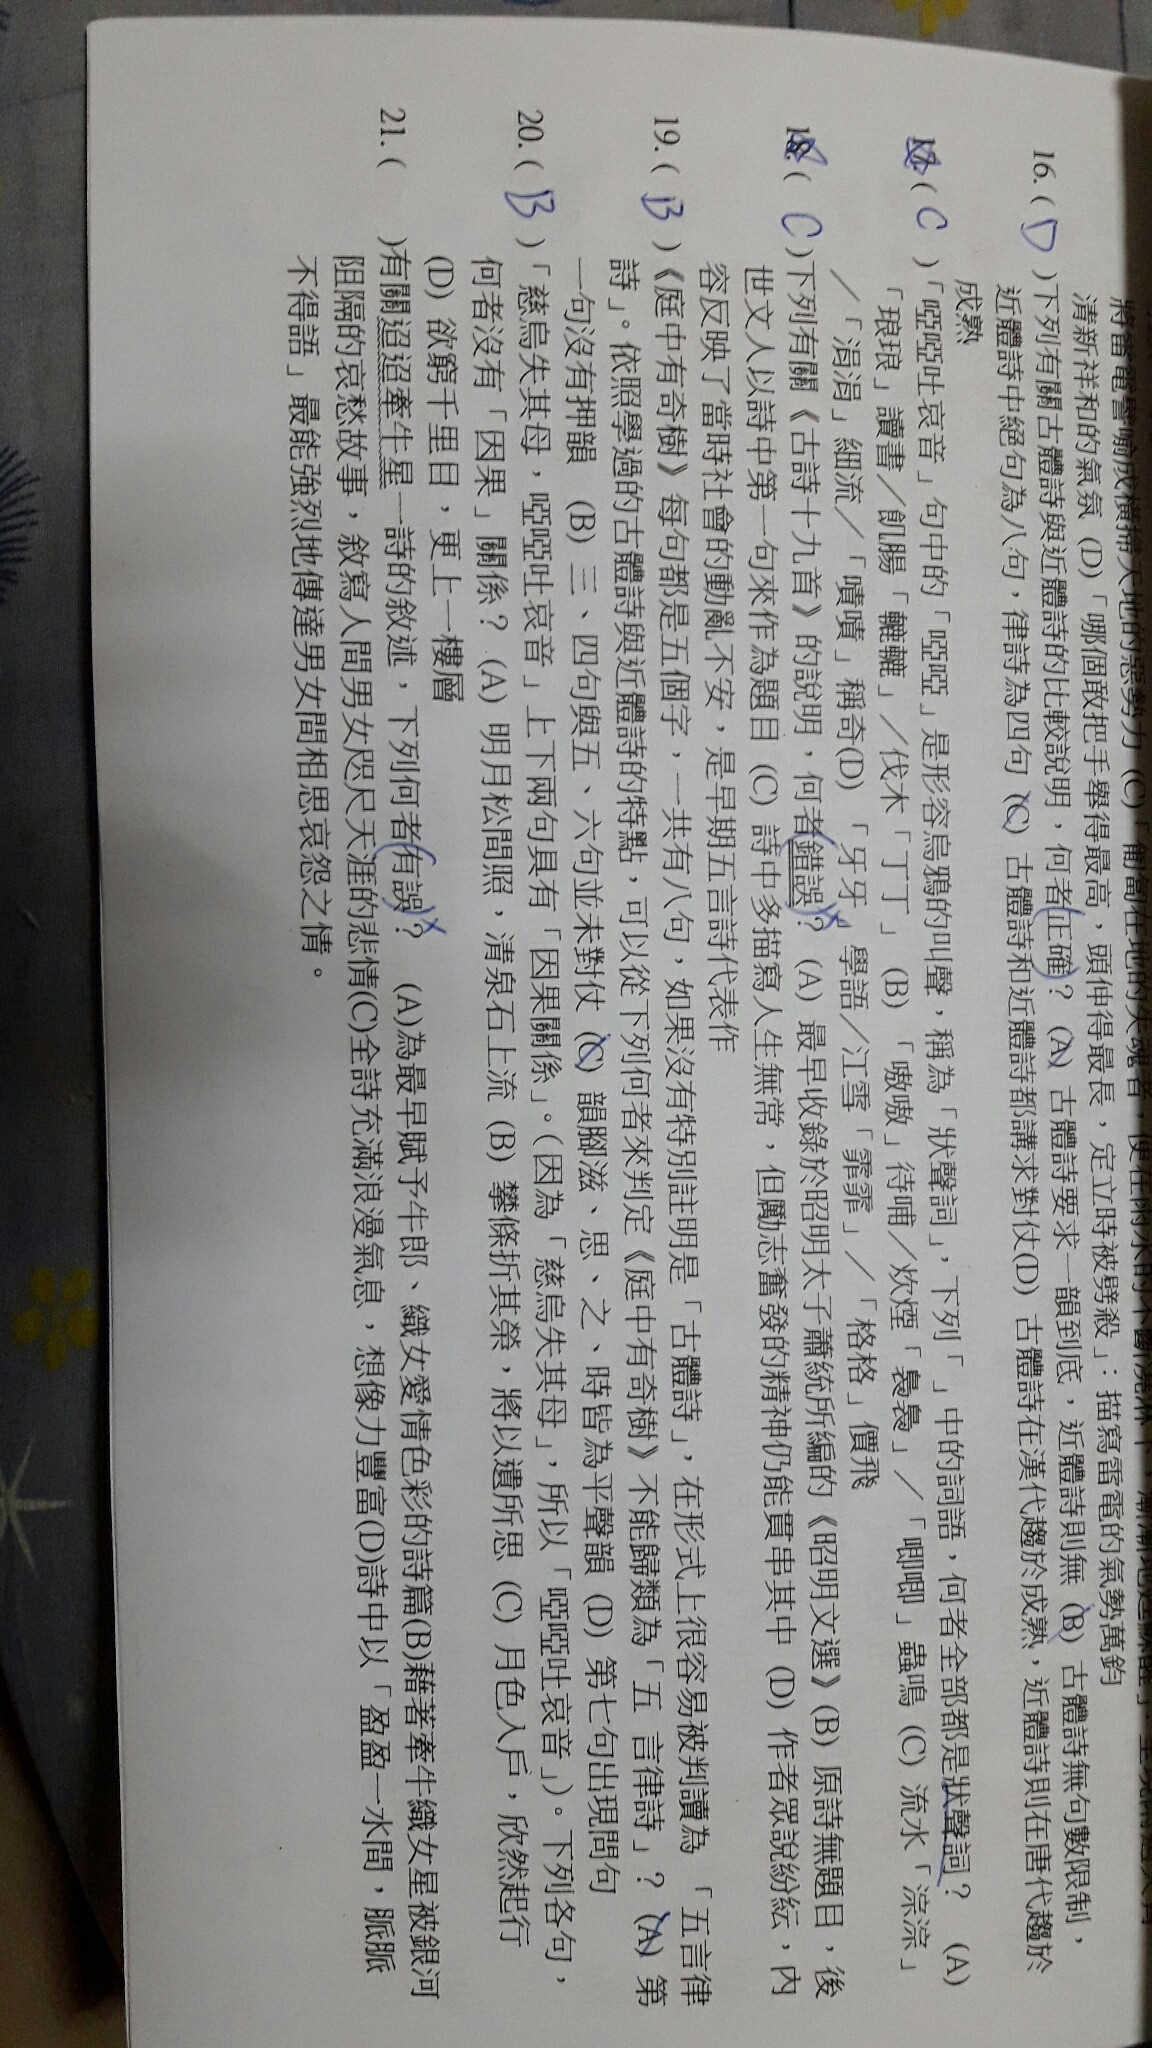 清新祥和的氣氛 (D)「哪個敢把手舉得最高，頭伸得最長，定立時被劈殺」：描寫雷電的氣勢萬鈞
16.( D )下列有關古體詩與近體詩的比較說明，何者正確？ (A) 古體詩要求一韻到底，近體詩則無 (B) 古體詩無句數限制，
近體詩中絕句為八句，律詩為四句 (C) 古體詩和近體詩都講求對仗(D) 古體詩在漢代趨於成熟，近體詩則在唐代趨於
成熟
( C )「啞啞吐哀音」句中的「啞啞」是形容烏鴉的叫聲，稱為「狀聲詞」，下列「 」中的詞語，何者全部都是狀聲詞？ (A)
「琅琅」讀書／飢腸「轆轆」／伐木「丁丁」 (B) 「嗷嗷」待哺／炊煙「裊裊」／「唧唧」蟲鳴 (C) 流水「淙淙」
／「涓涓」細流／「嘖嘖」稱奇(D) 「牙牙」學語／江雪「霏霏」／「格格」價飛
18.( C )下列有關《古詩十九首》的說明，何者錯誤？ (A) 最早收錄於昭明太子蕭統所編的《昭明文選》(B) 原詩無題目，後
世文人以詩中第一句來作為題目 (C) 詩中多描寫人生無常，但勵志奮發的精神仍能貫串其中 (D) 作者眾說紛紜，內
容反映了當時社會的動亂不安，是早期五言詩代表作
19.( B )《庭中有奇樹》每句都是五個字，一共有八句，如果沒有特別註明是「古體詩」，在形式上很容易被判讀為 「五言律
詩」。依照學過的古體詩與近體詩的特點，可以從下列何者來判定《庭中有奇樹》不能歸類為「五 言律詩」？ (A) 第
一句沒有押韻 (B) 三、四句與五、六句並未對仗 (C) 韻腳滋、思、之、時皆為平聲韻 (D) 第七句出現問句
20.( B )「慈烏失其母，啞啞吐哀音」上下兩句具有「因果關係」。(因為「慈烏失其母」，所以「啞啞吐哀音」)。下列各句，
何者沒有「因果」關係？ (A) 明月松間照，清泉石上流 (B) 攀條折其榮，將以遺所思 (C) 月色入戶，欣然起行
(D) 欲窮千里目，更上一樓層
21.( )有關迢迢牽牛星一詩的敘述，下列何者有誤？ (A)為最早賦予牛郎、織女愛情色彩的詩篇(B)藉著牽牛織女星被銀河
阻隔的哀愁故事，敘寫人間男女咫尺天涯的悲情(C)全詩充滿浪漫氣息，想像力豐富(D)詩中以「盈盈一水間，脈脈
不得語」最能強烈地傳達男女間相思哀怨之情。